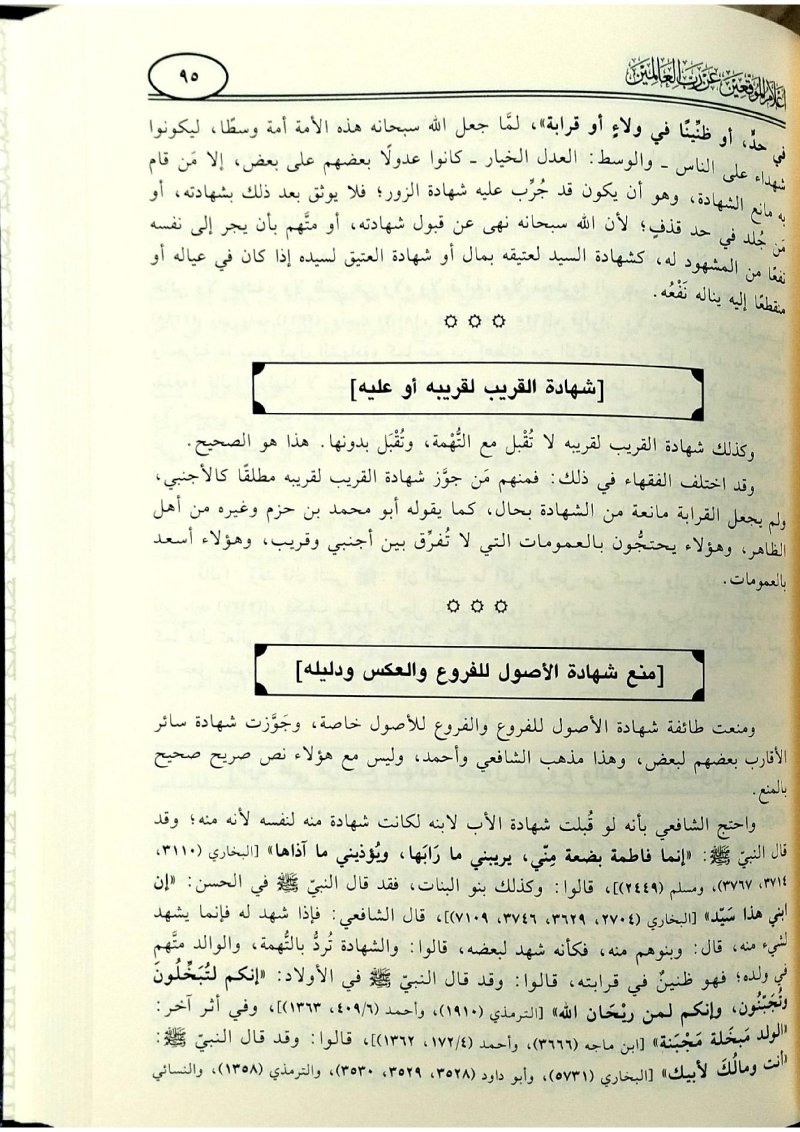 إعلام الموقعين عن رب العالمين
٩٥
في حدٍّ، أو ظنِّينًا في ولاءٍ أو قرابة»، لمَّا جعل الله سبحانه هذه الأمة أمة وسطًا، ليكونوا
شهداء على الناس ـ والوسط: العدل الخيار ـ كانوا عدولًا بعضهم على بعض، إلا مَن قام
به مانع الشهادة، وهو أن يكون قد جُرِّب عليه شهادة الزور؛ فلا يوثق بعد ذلك بشهادته، أو
مَن جُلد في حد قذفٍ؛ لأن الله سبحانه نهى عن قبول شهادته، أو متَّهم بأن يجر إلى نفسه
نفعًا من المشهود له، كشهادة السيد لعتيقه بمال أو شهادة العتيق لسيده إذا كان في عياله أو
منقطعًا إليه يناله نَفْعُه.
[شهادة القريب لقريبه أو عليه]
وكذلك شهادة القريب لقريبه لا تُقْبل مع التُّهْمة، وتُقْبَل بدونها. هذا هو الصحيح.
وقد اختلف الفقهاء في ذلك: فمنهم مَن جوَّز شهادة القريب لقريبه مطلقًا كالأجنبي،
ولم يجعل القرابة مانعة من الشهادة بحال، كما يقوله أبو محمد بن حزم وغيره من أهل
الظاهر، وهؤلاء يحتجُّون بالعمومات التي لا تُفرِّق بين أجنبي وقريب، وهؤلاء أسعد
بالعمومات.
[منع شهادة الأصول للفروع والعكس ودليله]
ومنعت طائفة شهادة الأصول للفروع والفروع للأصول خاصة، وجَوَّزت شهادة سائر
الأقارب بعضهم لبعض، وهذا مذهب الشافعي وأحمد، وليس مع هؤلاء نص صريح صحيح
بالمنع.
واحتج الشافعي بأنه لو قُبلت شهادة الأب لابنه لكانت شهادة منه لنفسه لأنه منه؛ وقد
قال النبيّ ﷺ: «إنما فاطمة بضعة مِنّي، يريبني ما رَابَها، ويُؤذيني ما آذاها» [البخاري (٣١١٠،
٣٧١٤، ٣٧٦٧)، ومسلم (٢٤٤٩)]، قالوا: وكذلك بنو البنات، فقد قال النبيّ ﷺ في الحسن: «إن
ابني هذا سَيّد» [البخاري (٢٧٠٤، ٣٦٢٩، ٣٧٤٦، ٧١٠٩)]، قال الشافعي: فإذا شهد له فإنما يشهد
لشيء منه، قال: وبنوهم منه، فكأنه شهد لبعضه، قالوا: والشهادة تُردُّ بالتُّهمة، والوالد متَّهم
في ولده؛ فهو ظنينٌ في قرابته، قالوا: وقد قال النبيّ ﷺ في الأولاد: «إنكم لتُبَخِّلُونَ
وتُجَبّنُون، وإنكم لـمن ريْحَان الله» [الترمذي (١٩١٠)، وأحمد (٤٠٩/٦، ١٣٦٣)]، وفي أثر آخر:
«الولد مَبخَلة مَجْبَنة» [ابن ماجه (٣٦٦٦)، وأحمد (١٧٢/٤، ١٣٦٢)]، قالوا: وقد قال النبيّ ﷺ:
«أنت ومالُكَ لأبيك» [البخاري (٥٧٣١)، وأبو داود (٣٥٢٨، ٣٥٢٩، ٣٥٣٠)، والترمذي (١٣٥٨)، والنسائي